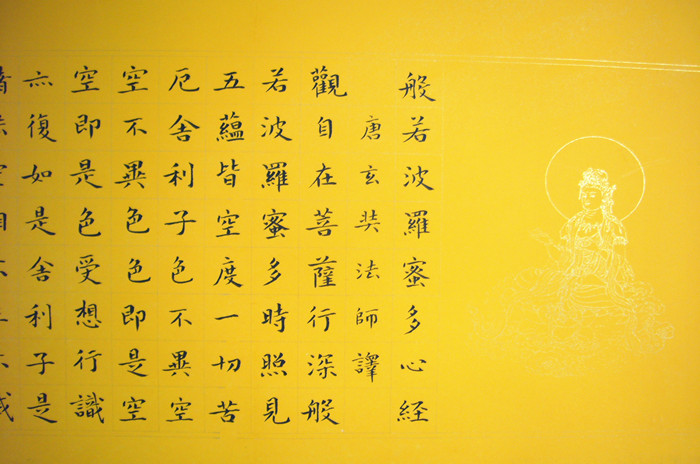 般若波羅蜜多心経
唐玄奘法師譯
觀自在菩薩行深般
若波羅蜜多時照見
五蘊皆空度一切苦
厄舍利子色不異空
空不異色色即是空
空即是色受想行識
亦復如是舍利子是